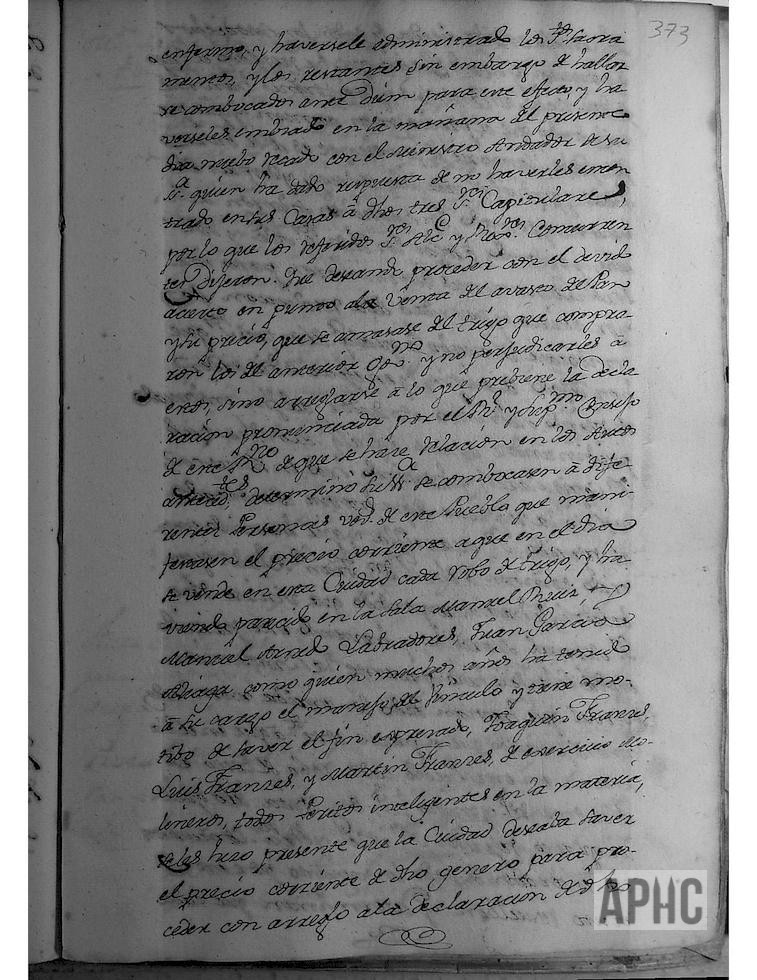 373
enfermo, y haversele administrado los Stos. Sacra
mentos, y los restantes sin embargo de hallar
se combocados ante Diem para este efecto, y ha
verseles embiado en la mañana del presente
dia nuebo recado con el Ministro Andador de su
Sª. quien ha dado respuesta de no haverles encon
trado en sus Casas â dhos tres Sres Capitulares,
por lo que los referidos Sres Alc y Rexres. Concurren
tes Dijeron: Que deseando proceder con el devido
acierto en punto ala Venta del avasto de Pan
y su precio, que se amasase del trigo que compra
ron los del anterior Govno y no perjudicarles â
estos, sino arreglarse â lo que previene la decla
racion pronunciada por el Rl. y Supmo. Consejo
de este Rno de que se hace relacion en los Autos
antecedtes, determino su Sª se combocasen â dife
rentes Personas vezs. de este Pueblo que mani
festasen el precio corriente aque en el dia
se vende en esta Ciudad cada robo de trigo, y ha
viendo parecido en la Sala Manuel Ruiz, y
Manuel Arnedo Labradores, Juan Garcia
Aliaga como quien muchos años ha tenido
â su cargo el manejo del Vinculo y tiene mo-
tibo de saver el fin expresado, Joaquin Franzes,
Luis Franzes, y Martin Franzes, de exercicio Mo-
lineros, todos Peritos inteligentes en la materia,
seles hizo presente que la Ciudad deseaba saver
el precio corriente de dho genero para pro-
ceder con arreglo ala declaracion de dho
APHC